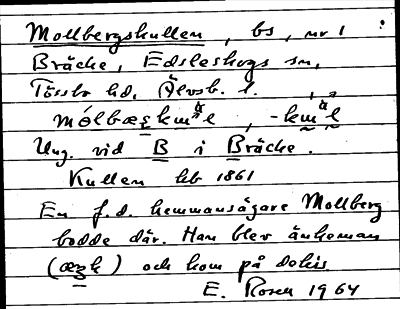 Mollbergskullen, bs, nr 1
Bräcke, Edsleskogs sn,
Tössbo hd, Älvsb. l.
Ung. vid B i Bräcke.
Kullen hb 1861
En f.d. hemmansägare Mollberg
bodde där. Han blev änkeman
och kom på dekis.
E. Rosen 1964